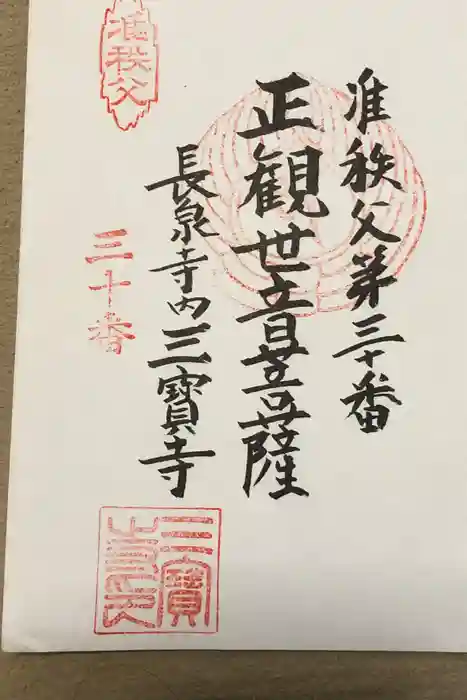 准秩父第三十番
正観世音菩薩
長泉寺内三寳寺
准秩父
三十番
三寳寺印